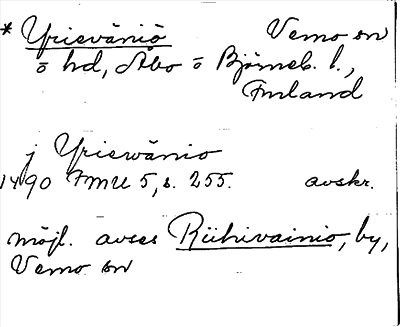 * Yrieväniö Vemo sn
ö hd, Åbo ö Björneb. l.,
Finland
j Yriewänio
1490 FMU 5, s. 255. avskr.
möjl. avses Riihivainio, by,
Vemo sn